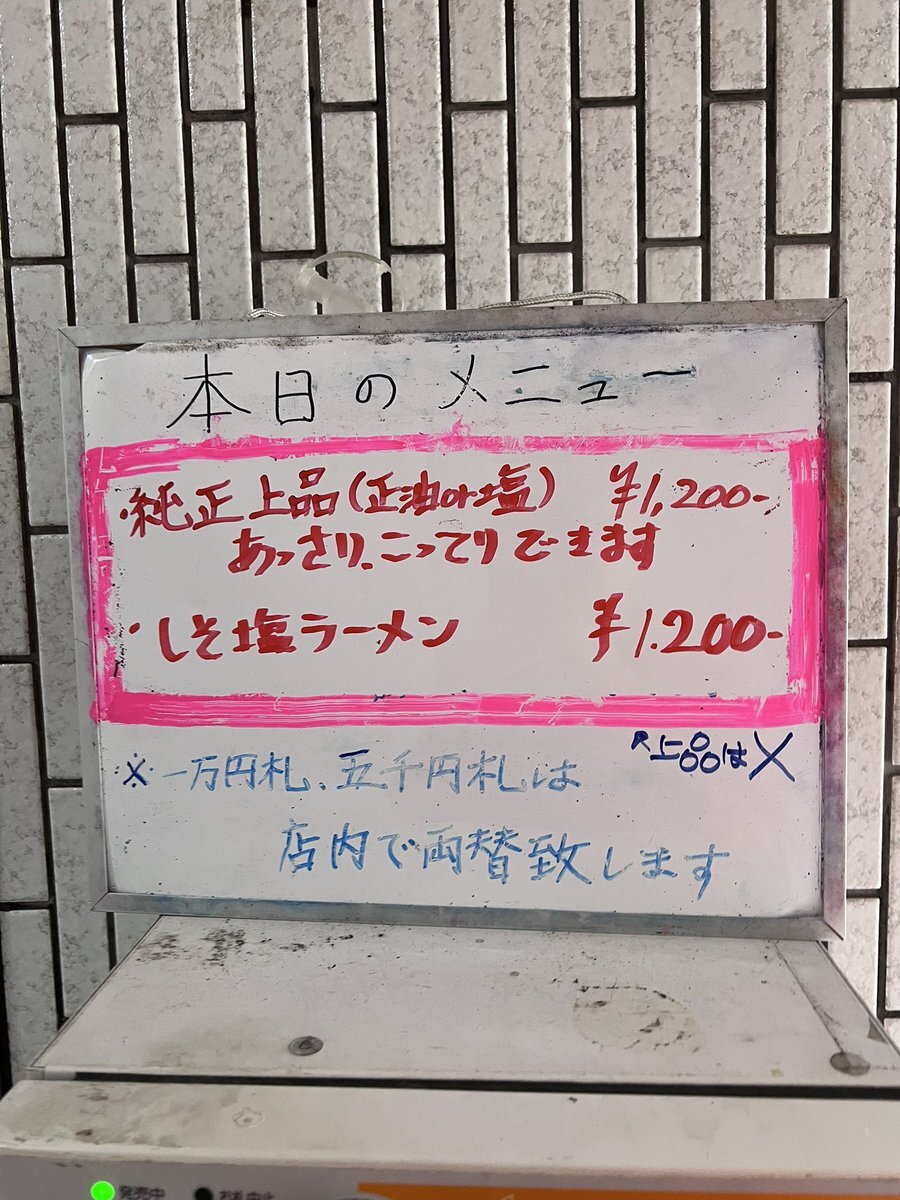 本日のメニュー
・純正上品(正油or塩) ¥1,200-
あっさり、こってりできます
・しそ塩ラーメン ¥1.200-
↖上品は✕
※一万円札、五千円札は
店内で両替致します
発売中